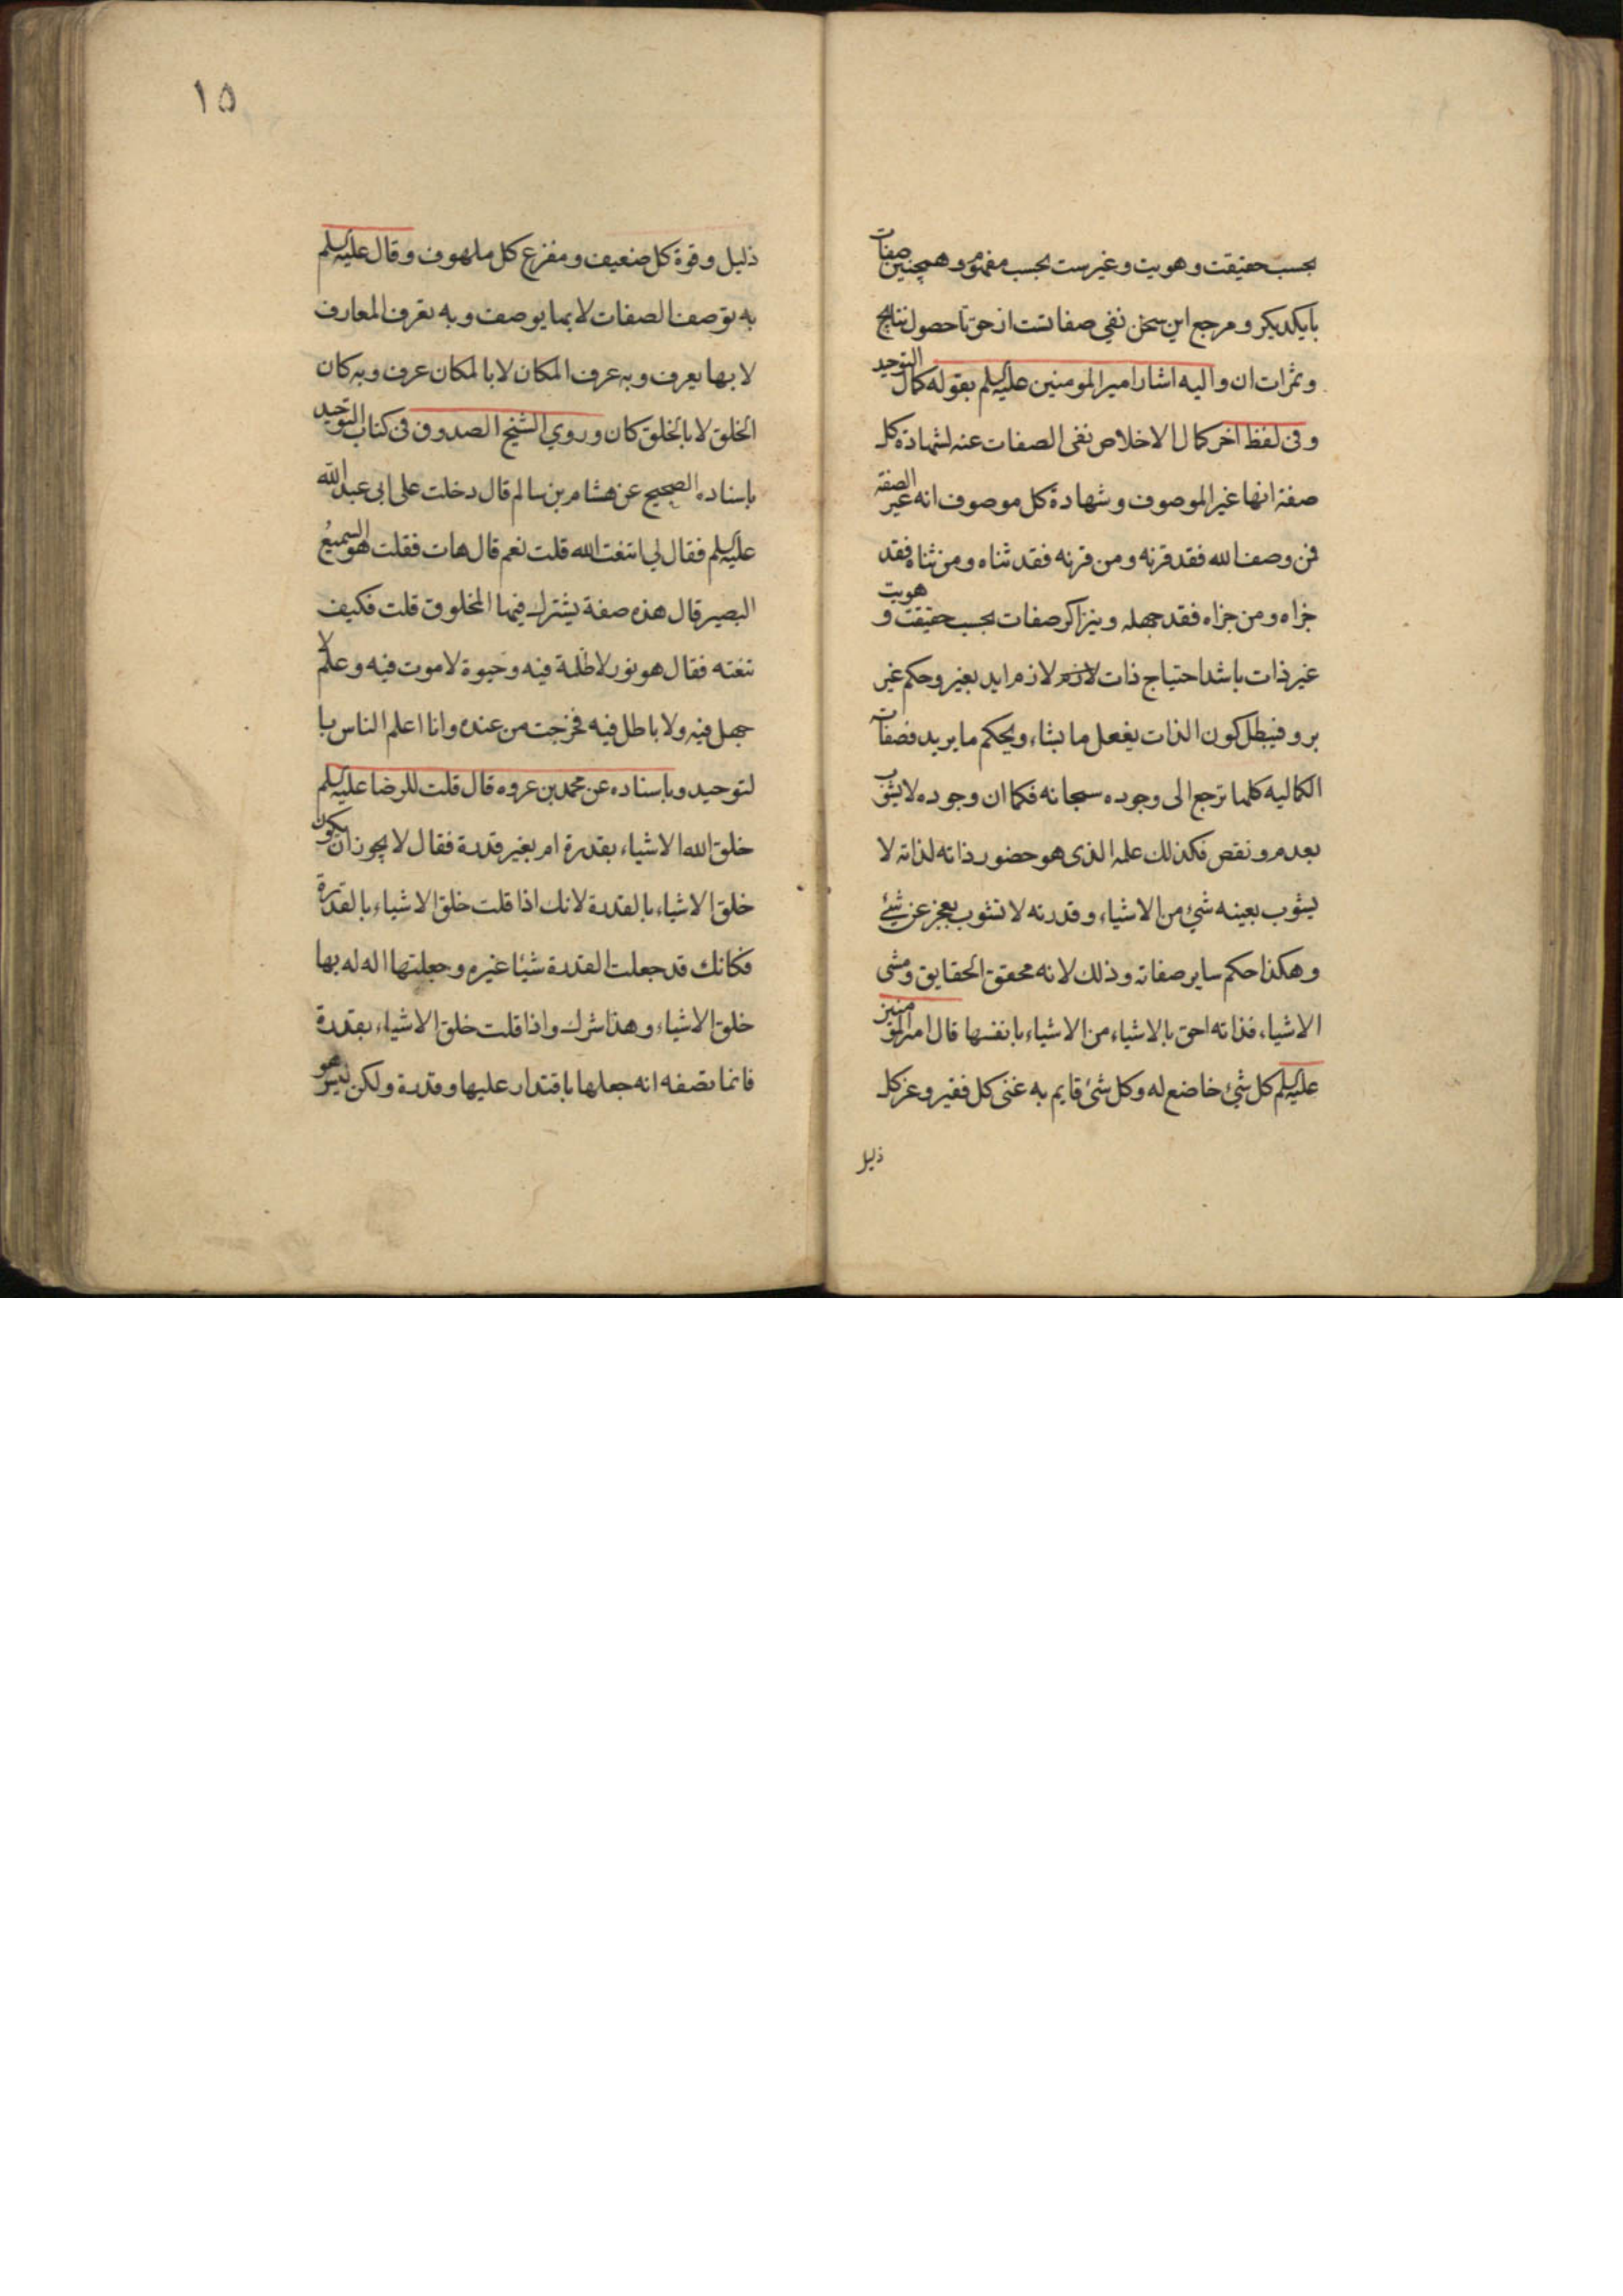 بحسب حقیقت و هویت و غیرست بحسب مفهوم و همچنین صفات
با یکدیکر و مرجع این سخن نفی صفاتست از حق با حصول نتایج
و ثمرات ان و الیه اشار امیر المومنین علیه السلم بقوله کمال التوحید
و فی لفظ اخر کمال الاخلاص نفی الصفات عنه لشهادة کل
صفة انها غیر الموصوف و شهادة کل موصوف انه غیر الصفة
فمن وصف الله فقد قرنه و من قرنه فقد ثناه و من ثناه فقد
جزاه و من جزاه فقد جهله و نیز اکر صفات بحسب حقیقت و هویت
غیر ذات باشد احتیاج ذات لازم لازم اید بغیر و حکم غیر
برو فیبطل کون الذات یفعل ما یشاء و یحکم ما یرید فصفات
الکمالیه کلها ترجع الی وجوده سبحانه فکما ان وجوده لا یشوب
بعدم و نقص فکذلک علمه الذی هو حضور ذاته لذاته لا
یشوب بعینه شیٔ من الاشیاء و قدرته لا تشوب بعجز عن شیٔ
و هکذا حکم سایر صفاته و ذلک لانه محقق الحقایق و مشی
الاشیاء فذاته احق بالاشیاء من الاشیاء بانفسها قال امیر المومنین
علیه السلم کل شیٔ خاضع له و کل شیٔ قایم به غنی کل فقیر و عز کل
ذلیل
١٥
ذلیل و قوة کل ضعیف و مفزع کل ملهوف و قال علیه السلم
به توصف الصفات لا بها یوصف و به تعرف المعارف
لا بها یعرف و به عرف المکان لا بالمکان عرف و به کان
الخلق لا بالخلق کان و روی الشیخ الصدوق فی کتاب التوحید
باسناده الصحیح عن هشام بن سالم قال دخلت علی ابی عبد الله
علیه السلم فقال لی اتنعت الله قلت نعم قال هات فقلت هو السمیع
البصیر قال هذه صفة یشترک فیها المخلوق قلت فکیف
تنعته فقال هو نور لا ظلمة فیه و حیوة لا موت فیه و علم لا
جهل فیه و لا باطل فیه فخرجت من عنده و انا اعلم الناس با
لتوحید و باسناده عن محمد بن عروه قال قلت للرضا علیه السلم
خلق الله الاشیاء بقدرة ام بغیر قدرة فقال لا یجوز ان یکون
خلق الاشیاء بالقدرة لانک اذا قلت خلق الاشیاء بالقدرة
فکانک قد جعلت القدرة شیئا غیره و جعلتها اله له بها
خلق الاشیاء و هذا شرک و اذا قلت خلق الاشیاء بقدرة
فانما تصفه انه جعلها باقتدار علیها و قدرة و لکن لیس هو